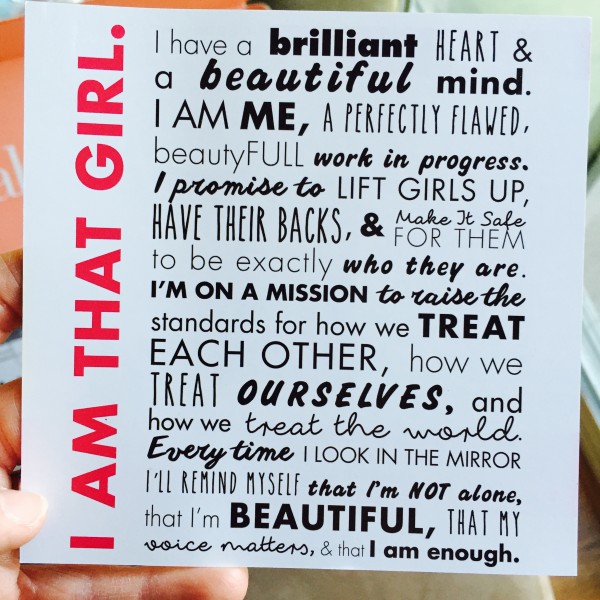 I AM THAT GIRL.
I have a brilliant HEART &
a beautiful mind.
I AM ME, A PERFECTLY FLAWED,
beautyFULL work in progress.
I promise to LIFT GIRLS UP,
HAVE THEIR BACKS, & Make It Safe
FOR THEM
to be exactly who they are.
I'M ON A MISSION to raise the
standards for how we TREAT
EACH OTHER, how we
TREAT OURSELVES, and
how we treat the world.
Every time I LOOK IN THE MIRROR
I'LL REMIND MYSELF that I'm NOT alone,
that I'm BEAUTIFUL, THAT MY
voice matters, & that I am enough.